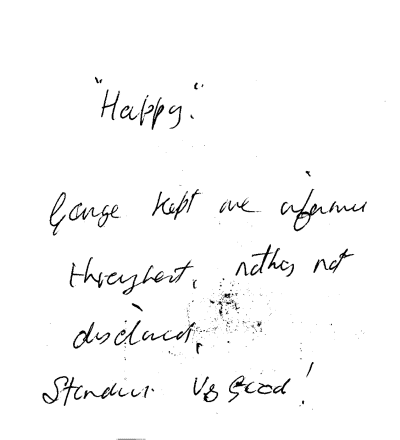 "Happy."
George kept me informed
throughout, nothing not
disclosed,
Standard V Good!